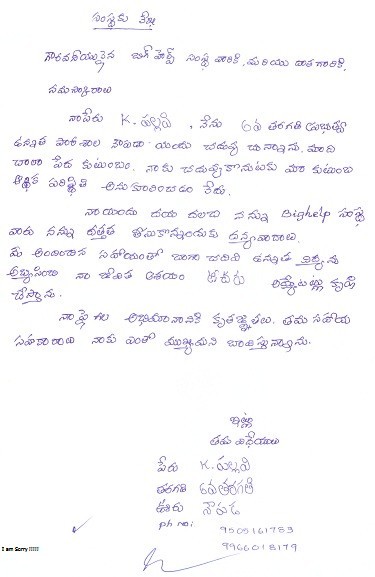 సంస్థకు లేఖ
గౌరవనీయులైన బిగ్ హెల్ప్ సంస్థ వారికి, మరియు దాతగారికి,
నమస్కారాలు
నాపేరు K. పల్లవి, నేను 6వ తరగతి ప్రభుత్వ
ఉన్నత పాఠశాల నౌపడా యందు చదువు చున్నాను. మాది
చాలా పేద కుటుంబం. నాకు చదువుకొనుటకు మా కుటుంబ
ఆర్థిక పరిస్థితి అనుకూలించడం లేదు.
నాయందు దయ దలచి నన్ను Bighelp సంస్థ
వారు నన్ను దత్తత తీసుకొన్నందుకు ధన్యవాదాలు.
మీ అందించిన సహాయంతో బాగా చదివి ఉన్నత విద్యను
అభ్యసించి నా జీవిత ఆశయం టీచరు అయ్యేటట్లు కృషి
చేస్తాను.
నా పై గల అభిమానానికి కృతజ్ఞతలు. తమ సహాయ
సహకారాలు నాకు ఎంతో ముఖ్యమని భావిస్తున్నాను.
ఇట్లు
తమ విధేయురాలు
పేరు K. పల్లవి
తరగతి 6వ తరగతి
ఊరు నౌపడ
ph no: 9505161753
9966018179
I am Sorry !!!!!